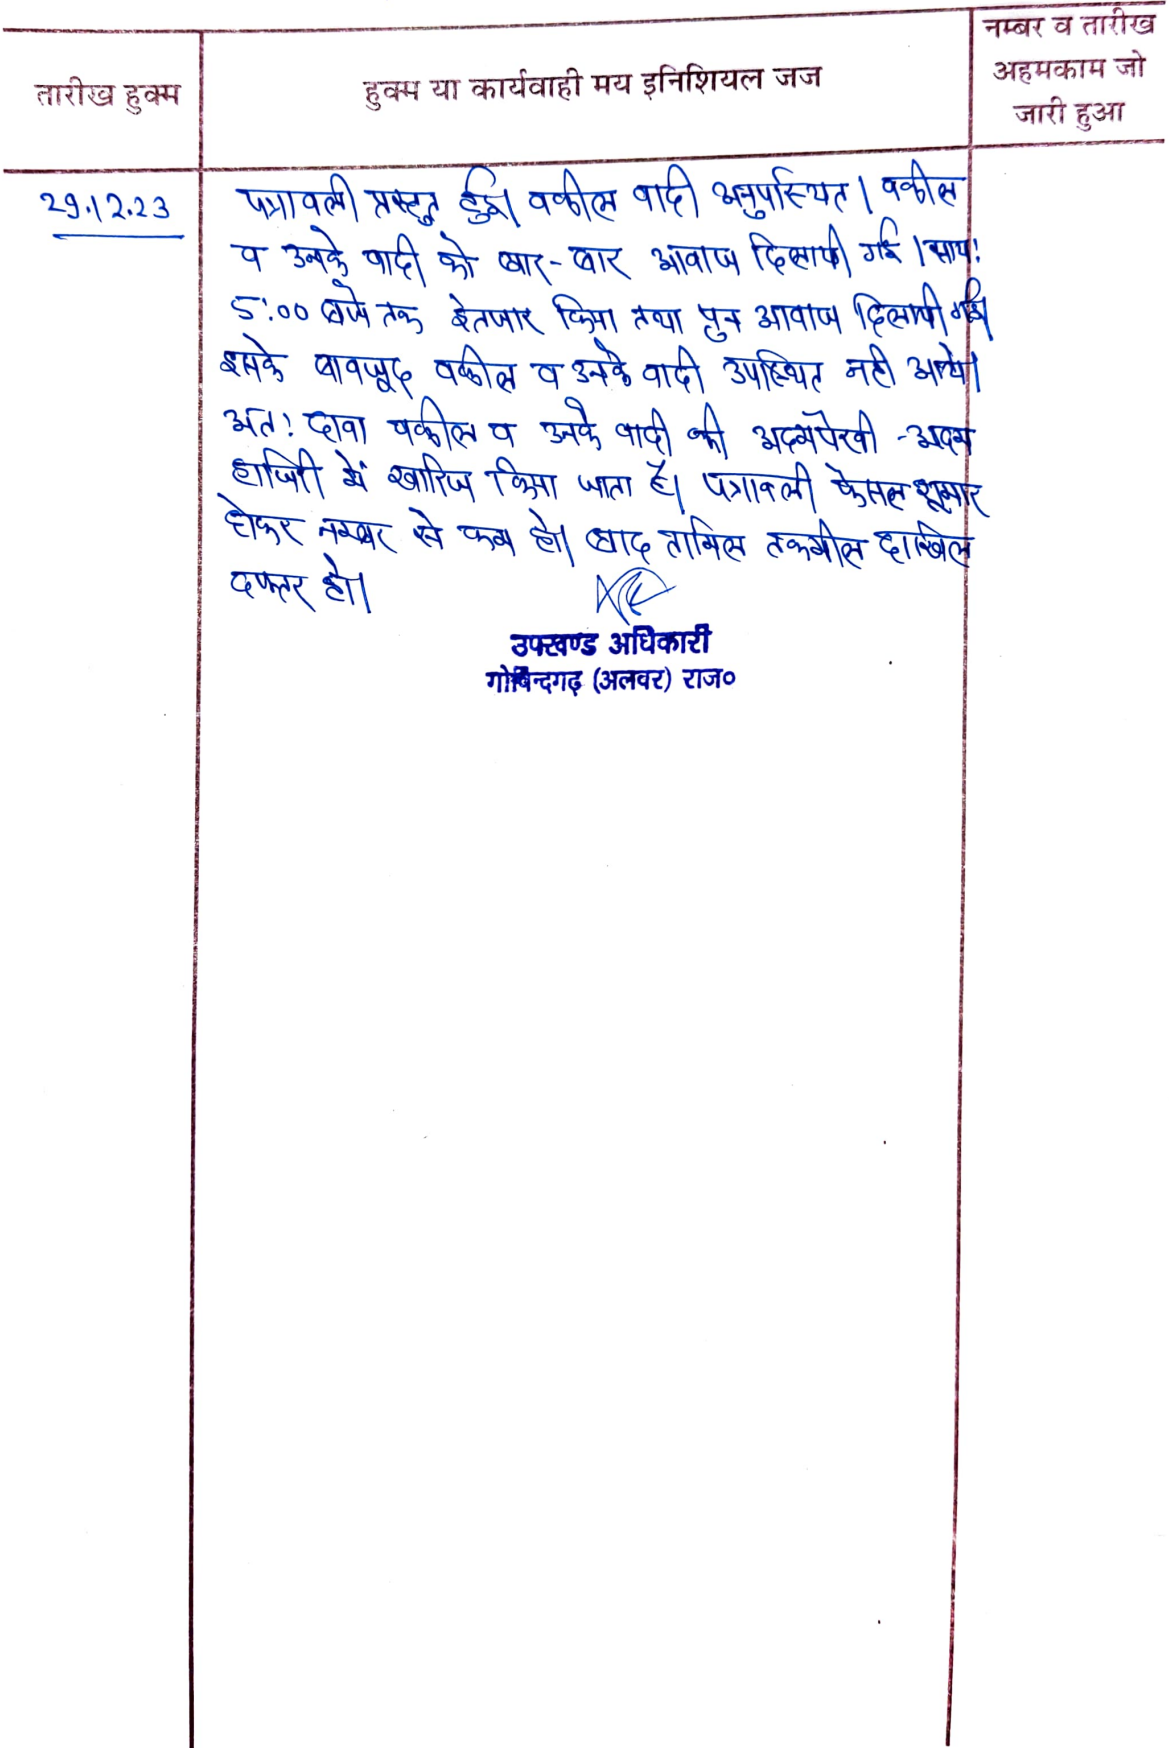 नम्बर व तारीख
तारीख हुक्म
हुक्म या कार्यवाही मय इनिशियल जज
अहमकाम जो
जारी हुआ
29.12.23
पत्रावली प्रस्तुत हुई। वकील वादी अनुपस्थित। वकील
व उनके वादी को बार-बार आवाज दिलायी गई। साय:
5:00 बजे तक इंतजार किया तथा पुन आवाज दिलायी गई।
इसके बावजूद वकील व उनके वादी उपस्थित नही आये।
अत: दावा वकील व उनके वादी की अदमपैरवी -अदम
हाजिरी में खारिज किया जाता है। पत्रावली फैसल शुमार
होकर नम्बर से कम हो। बाद तामिल तकमील दाखिल
दफ्तर हो।
उपखण्ड अधिकारी
गोविन्दगढ़ (अलवर) राज०